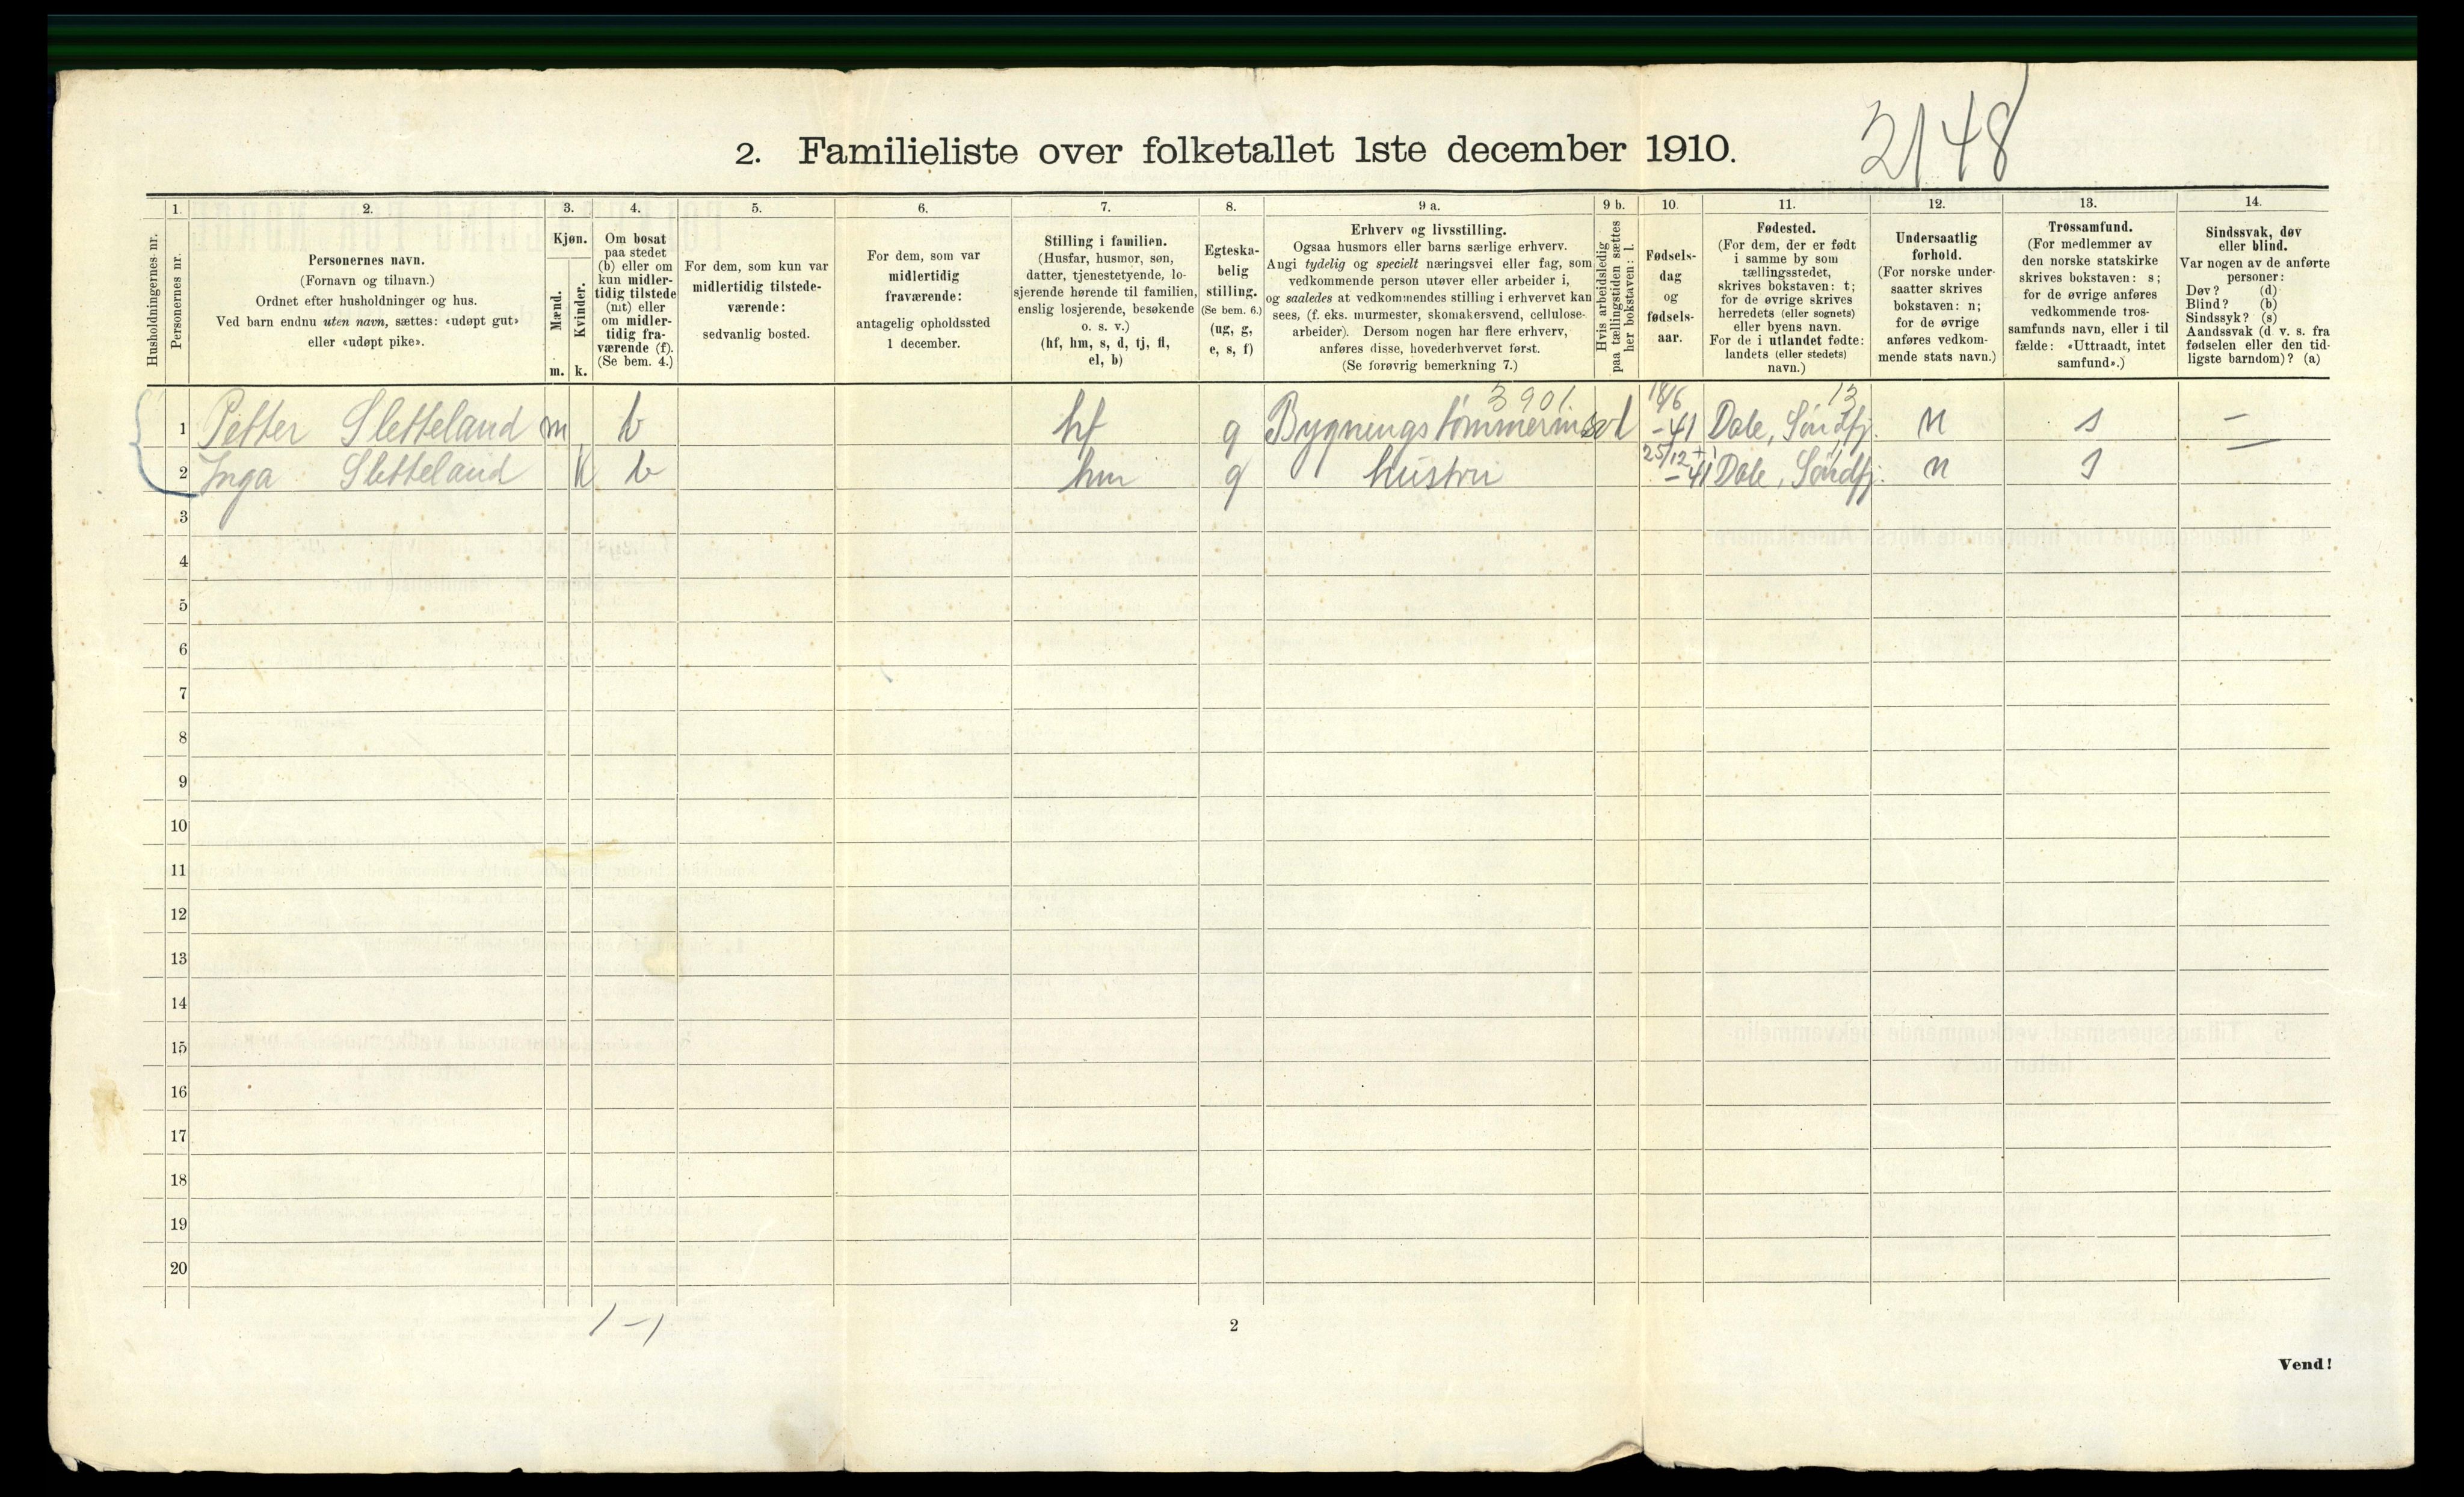 2148
2. Familieliste over folketallet 1ste december 1910.
Husholdningernes nr.
1.
Personernes nr.
2.
Personernes navn.
(Fornavn og tilnavn.)
Ordnet efter husholdninger og hus.
Ved barn endnu uten navn, sættes: «udøpt gut»
eller «udøpt pike».
3.
Kjøn.
Mænd.
Kvinder.
m.
k.
4.
Om bosat
paa stedet
(b) eller om
kun midler-
tidig tilstede
(mt) eller
om midler-
tidig fra-
værende (f).
(Se bem. 4.)
5.
For dem, som kun var
midlertidig tilstede-
værende:
sedvanlig bosted.
6.
For dem, som var
midlertidig
fraværende:
antagelig opholdssted
1 december.
7.
Stilling i familien.
(Husfar, husmor, søn,
datter, tjenestetyende, lo-
sjerende hørende til familien,
enslig losjerende, besøkende
o. s. v.)
(hf, hm, s, d, tj, fl,
el, b)
8.
Egteska-
belig
stilling.
(Se bem. 6.)
(ug, g,
e, s, f)
9 a.
Erhverv og livsstilling.
Ogsaa husmors eller barns særlige erhverv.
Angi tydelig og specielt næringsvei eller fag, som
vedkommende person utøver eller arbeider i,
og saaledes at vedkommendes stilling i erhvervet kan
sees, (f. eks. murmester, skomakersvend, cellulose-
arbeider). Dersom nogen har flere erhverv,
anføres disse, hovederhvervet først.
(Se forøvrig bemerkning 7.)
9 b.
Hvis arbeidsledig
paa tællingstiden sættes
her bokstaven: l.
10.
Fødsels-
dag
og
fødsels-
aar.
11.
Fødested.
(For dem, der er født
i samme by som
tællingsstedet,
skrives bokstaven: t;
for de øvrige skrives
herredets (eller sognets)
eller byens navn.
For de i utlandet fødte:
landets (eller stedets)
navn.)
12.
Undersaatlig
forhold.
(For norske under-
saatter skrives
bokstaven: n;
for de øvrige
anføres vedkom-
mende stats navn.)
13.
Trossamfund.
(For medlemmer av
den norske statskirke
skrives bokstaven: s;
for de øvrige anføres
vedkommende tros-
samfunds navn, eller i til
fælde: «Uttraadt, intet
samfund».)
14.
Sindssvak, døv
eller blind.
Var nogen av de anførte
personer:
Døv? (d)
Blind? (b)
Sindssyk? (s)
Aandssvak (d. v. s. fra
fødselen eller den tid-
ligste barndom)? (a)
3901. 13
1 Petter Sletteland m b hf g -41 Dale, Søndfj. n s —
25/12
2 Inga Sletteland k b hm g hustru -41 Dale, Søndfj. n s —
3
4
5
6
7
8
9
10
11
12
13
14
15
16
17
18
19
20
1-1
2
Vend!